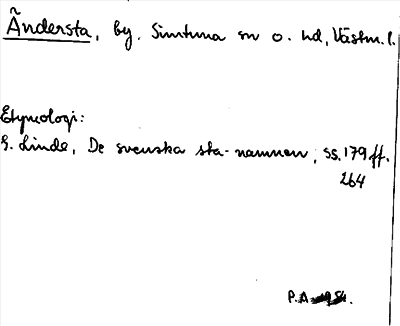 Ändersta, by. Simtuna sn o. hd, Västm. l.
Etymologi:
G. Linde, De svenska sta-namnen, ss. 179 ff.
264
P.A.